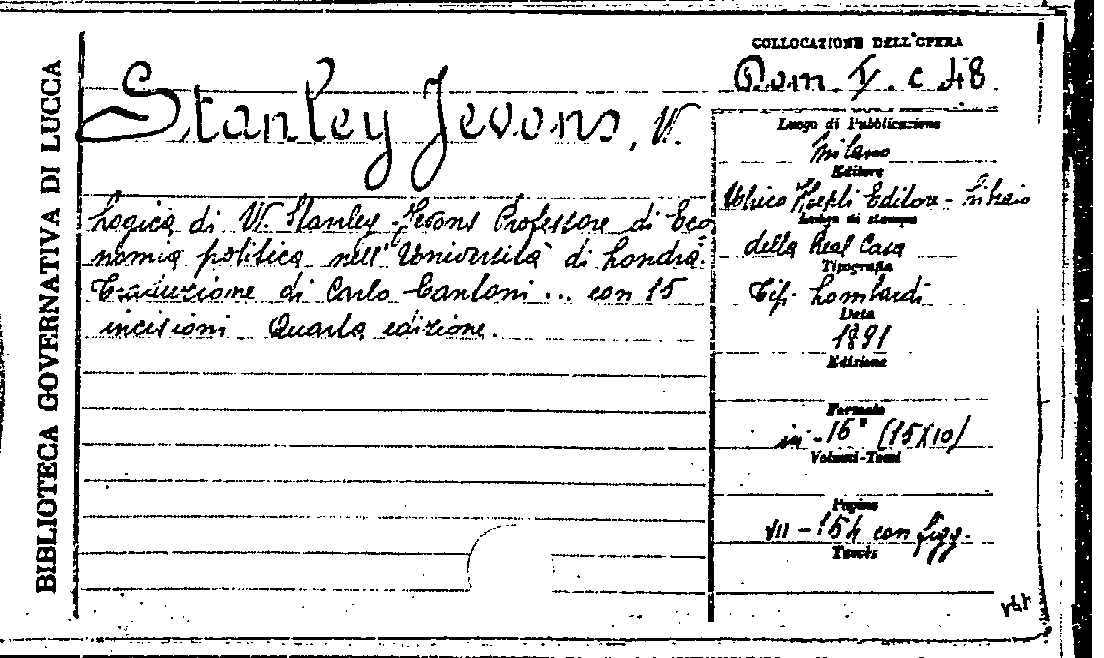 BIBLIOTECA GOVERNATIVA DI LUCCA
Stanley Jevons, W.
Logica di W. Stanley-Jevons Professore di Eco
nomia politica nell'Università di Londra.
Traduzione di Carlo Cantoni ... con 15
incisioni Quarta edizione.
COLLOCAZIONE DELL'OPERA
Dom. V. c 48
Luogo di Pubblicazione
Milano
Editore
Ulrico Hoepli Editore - Libraio
Luogo di stampa
della Real Casa
Tipografia
Tip. Lombardi
Data
1891
Edizione
Formato
in-16° (15X10)
Volumi-Tomi
Pagine
VII - 154 con figg.
Tavole